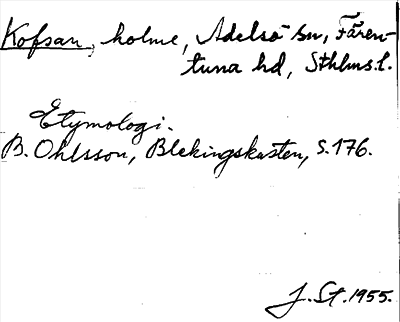 Kofsan, holme, Adelsö sn, Fären-
tuna hd, Sthlms l.
Etymologi.
B. Ohlsson, Blekingskusten, s. 176.
J. St. 1955.